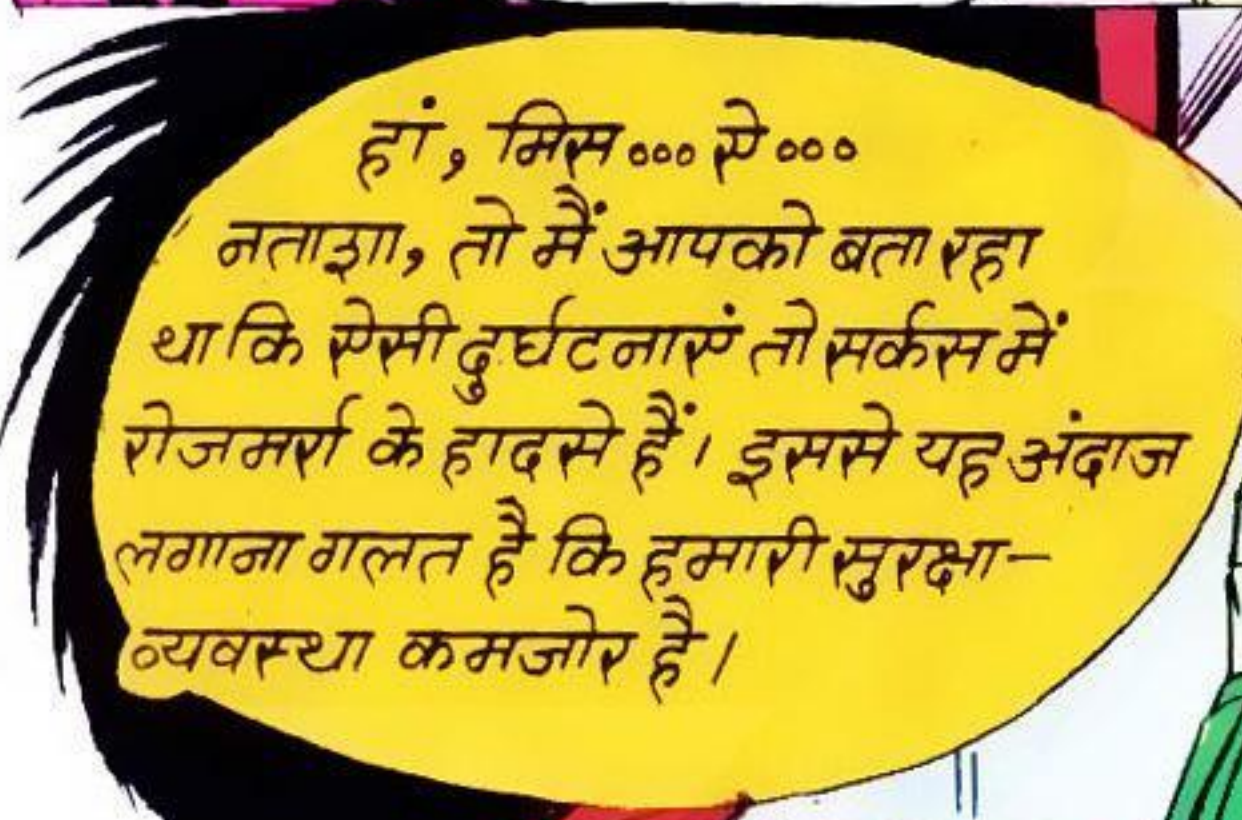 हां, मिस... ऐ...
नताशा, तो मैं आपको बता रहा
था कि ऐसी दुर्घटनाएं तो सर्कस में
रोजमर्रा के हादसे हैं। इससे यह अंदाज
लगाना गलत है कि हमारी सुरक्षा-
व्यवस्था कमजोर है।